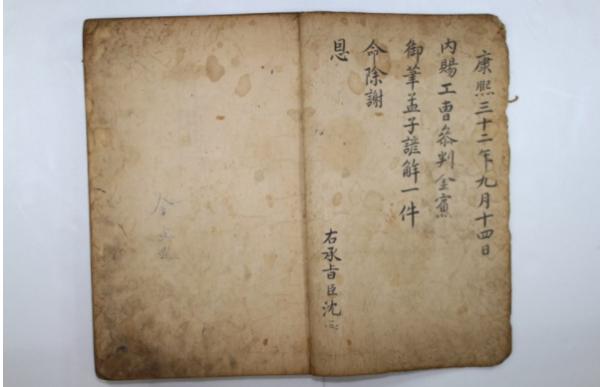 康熙三十二年九月十四日
內賜工曹叅判金
御筆孟子諺解一件
命除謝
恩
右承旨臣沈